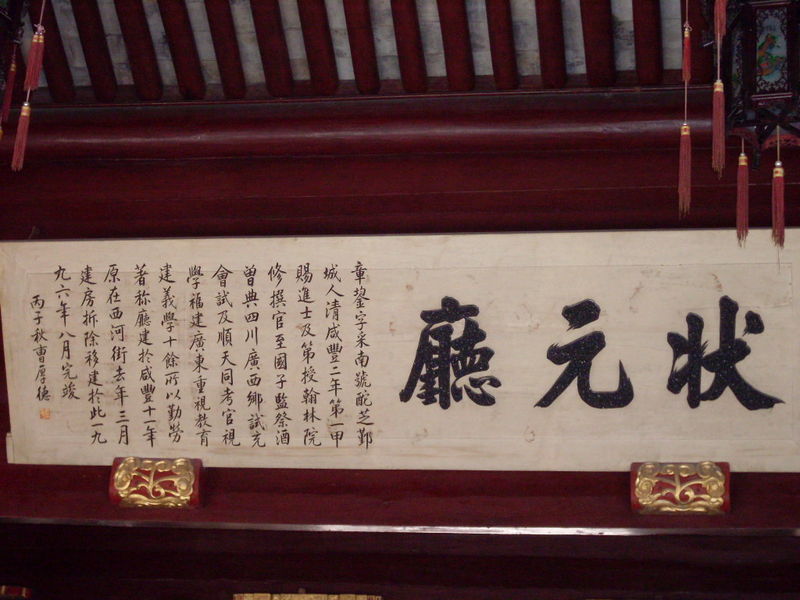 狀元廳
章鋆字采南號酡芝鄞
城人清咸豐二年第一甲
賜進士及第授翰林院
修撰官至國子監祭酒
曾典四川廣西鄉試充
會試及順天同考官視
學福建廣東重視教育
建義學十餘所以勤勞
著称廳建於咸豐十一年
原在西河街去年三月
建房拆除移建於此一九
九六年八月完竣
丙子秋曹厚德